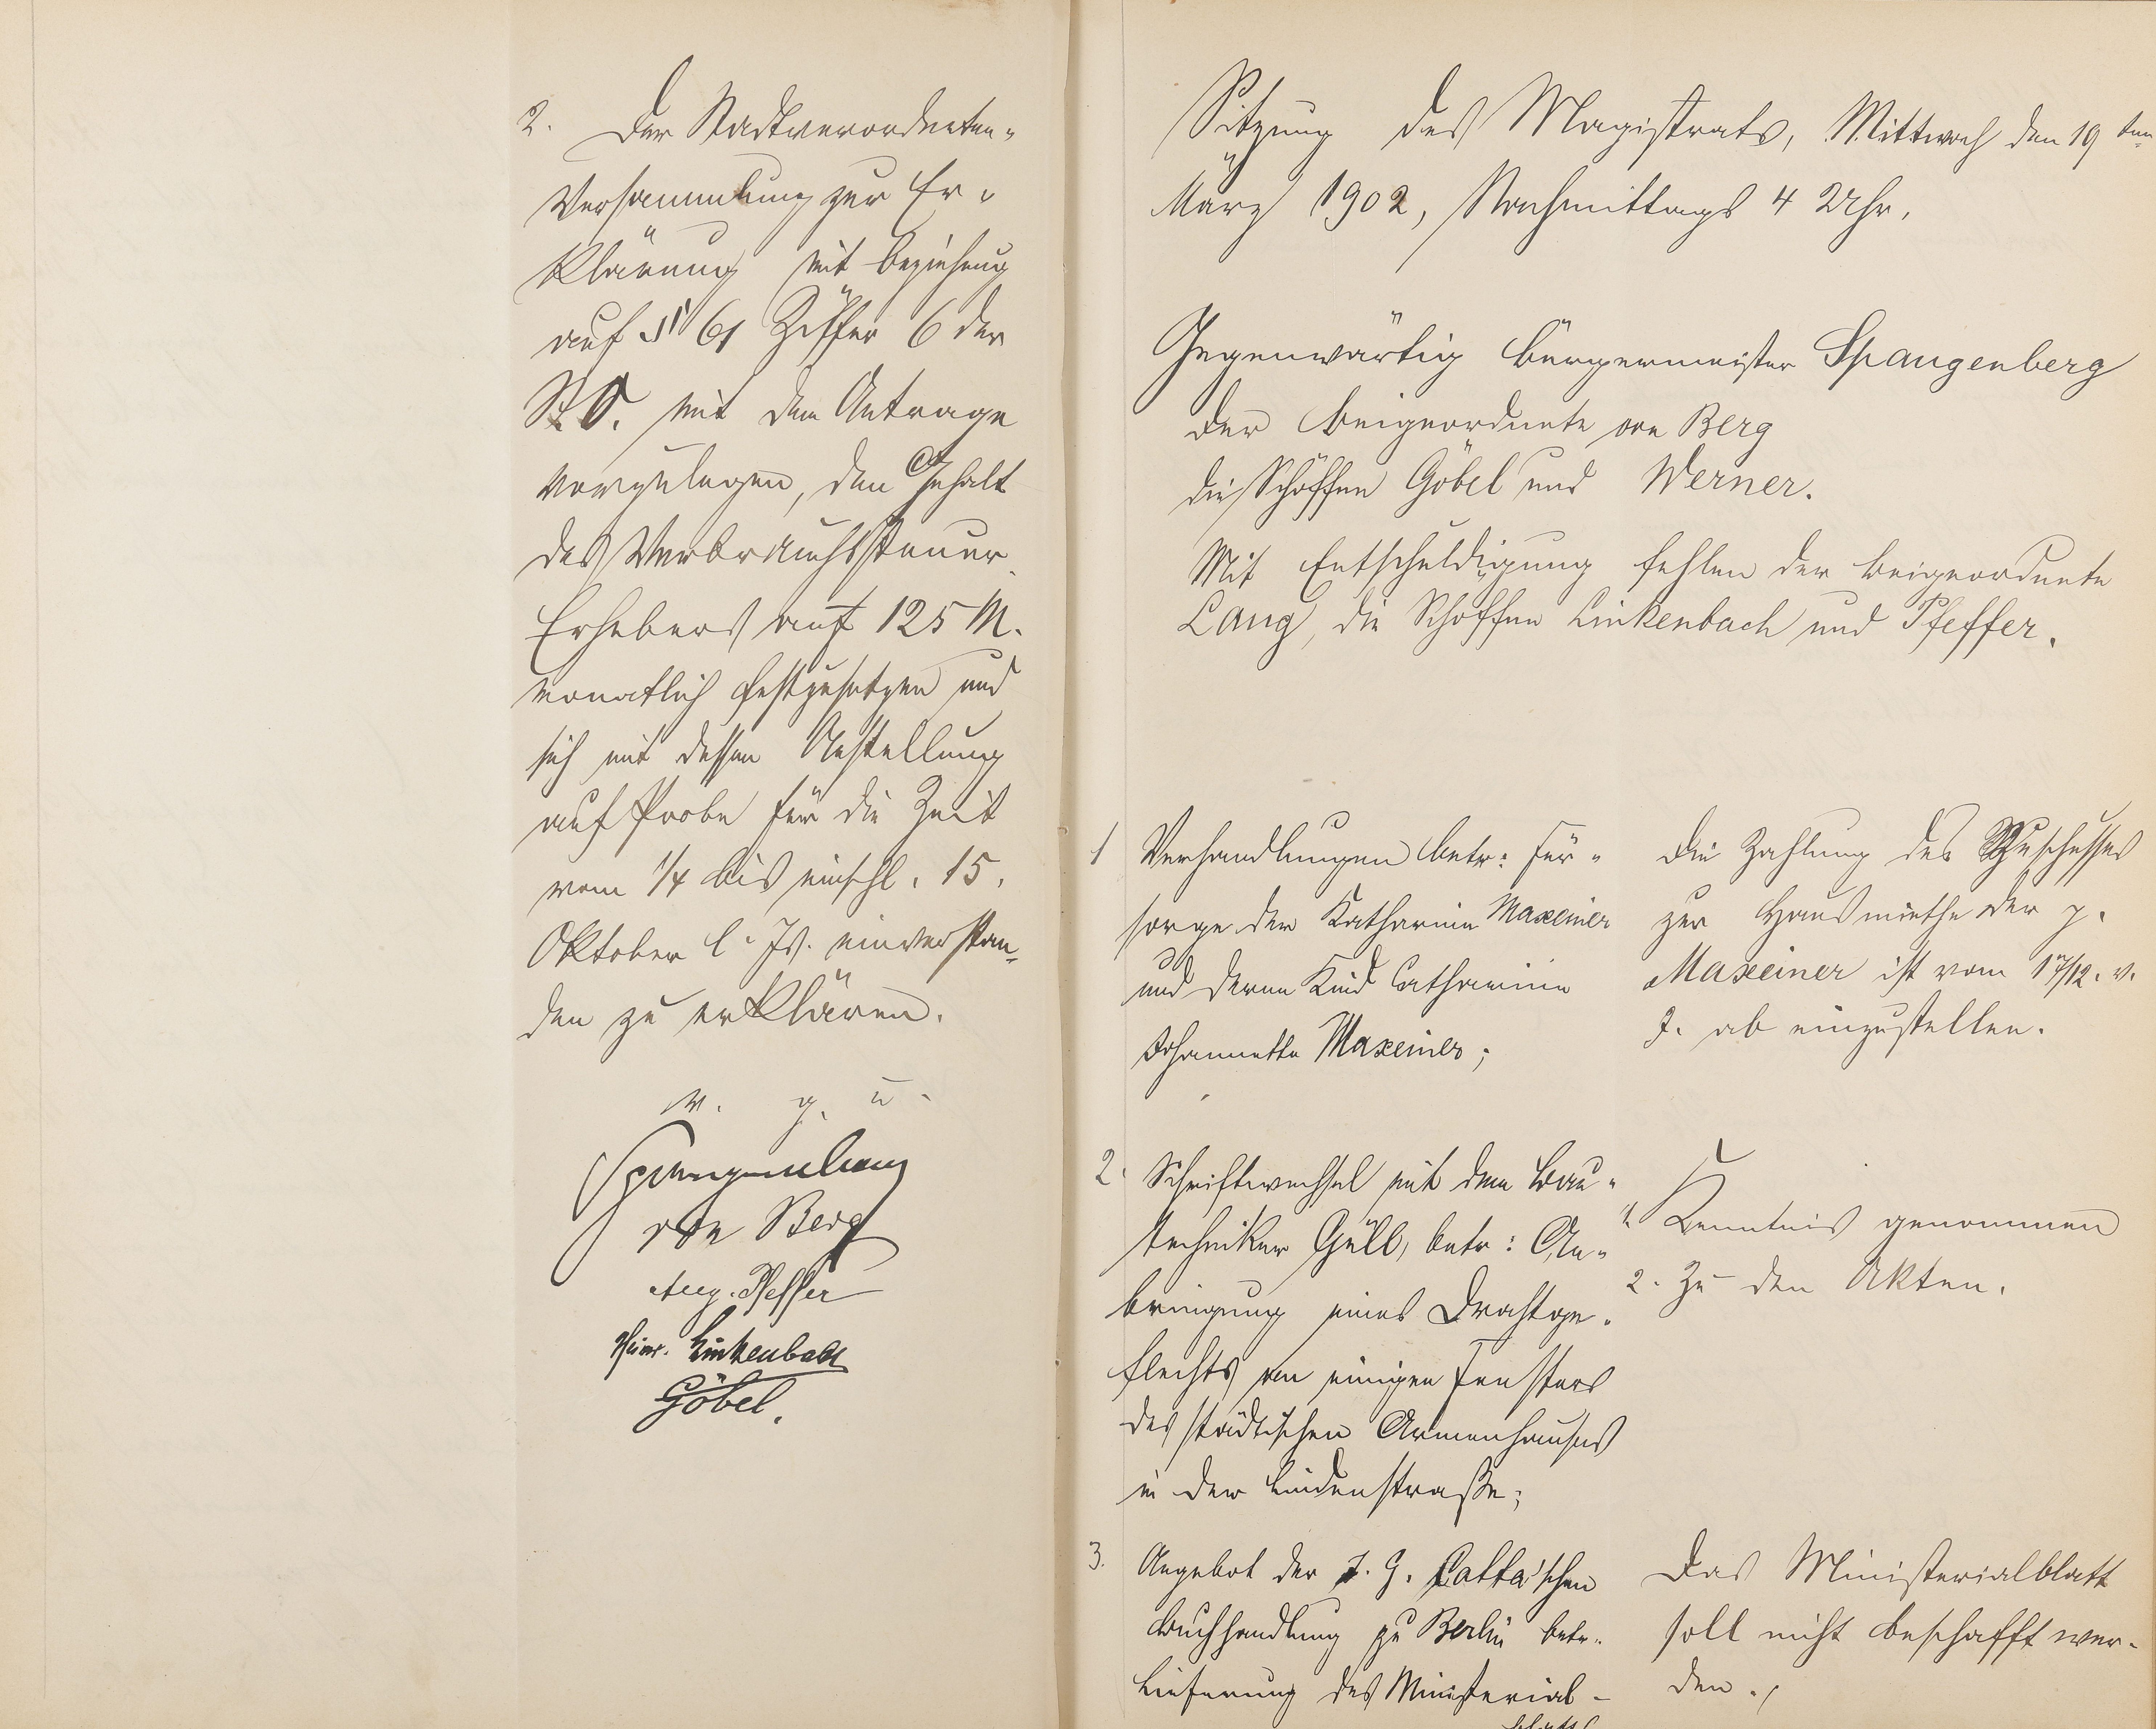 2. Der Stadtverordneten-
Versammlung zur Er-
klärung mit Beziehung
auf § 61 Ziffer 6 der
St. O. mit dem Antrage
vorzulegen, den Gehalt
des Verbrauchssteuer-
Erhebers auf 125 M.
monatlich festzusetzen und
sich mit dessen Anstellung
auf Probe für die Zeit
vom 1/4 bis einschl. 15.
Oktober l. Js. einverstan-
den zu erklären.
v. g. u.
Spangenberg
von Berg
Aug. Pfeffer
Heinr. Linkenbach
Göbel.
Sitzung des Magistrats, Mittwoch den 19ten
März 1902, Nachmittags 4 Uhr.
Gegenwärtig Bürgermeister Spangenberg
der Beigeordnete von Berg
die Schöffen Göbel und Werner.
Mit Entschuldigung fehlen der Beigeordnete
Lang, die Schöffen Linkenbach und Pfeffer.
1 Verhandlungen betr: Für-
sorge der Katharine Maxeiner
und deren Kind Catharine
Johannette Maxeiner;
Die Zahlung des Zuschusses
zur Hausmiethe der p.
Maxeiner ist vom 17/12. v.
J. ab einzustellen.
2. Schriftwechsel mit dem Bau-
techniker Güll, betr: An-
bringung eines Drahtge-
flechts an einigen Fenstern
des städtischen Armenhauses
in der Lindenstraße;
1. Kenntnis genommen
2. Zu den Akten.
3. Angebot der J. G. Cotta'schen
Buchhandlung zu Berlin betr.
Lieferung des Ministerial-
blatts
Das Ministerialblatt
soll nicht beschafft wer-
den.